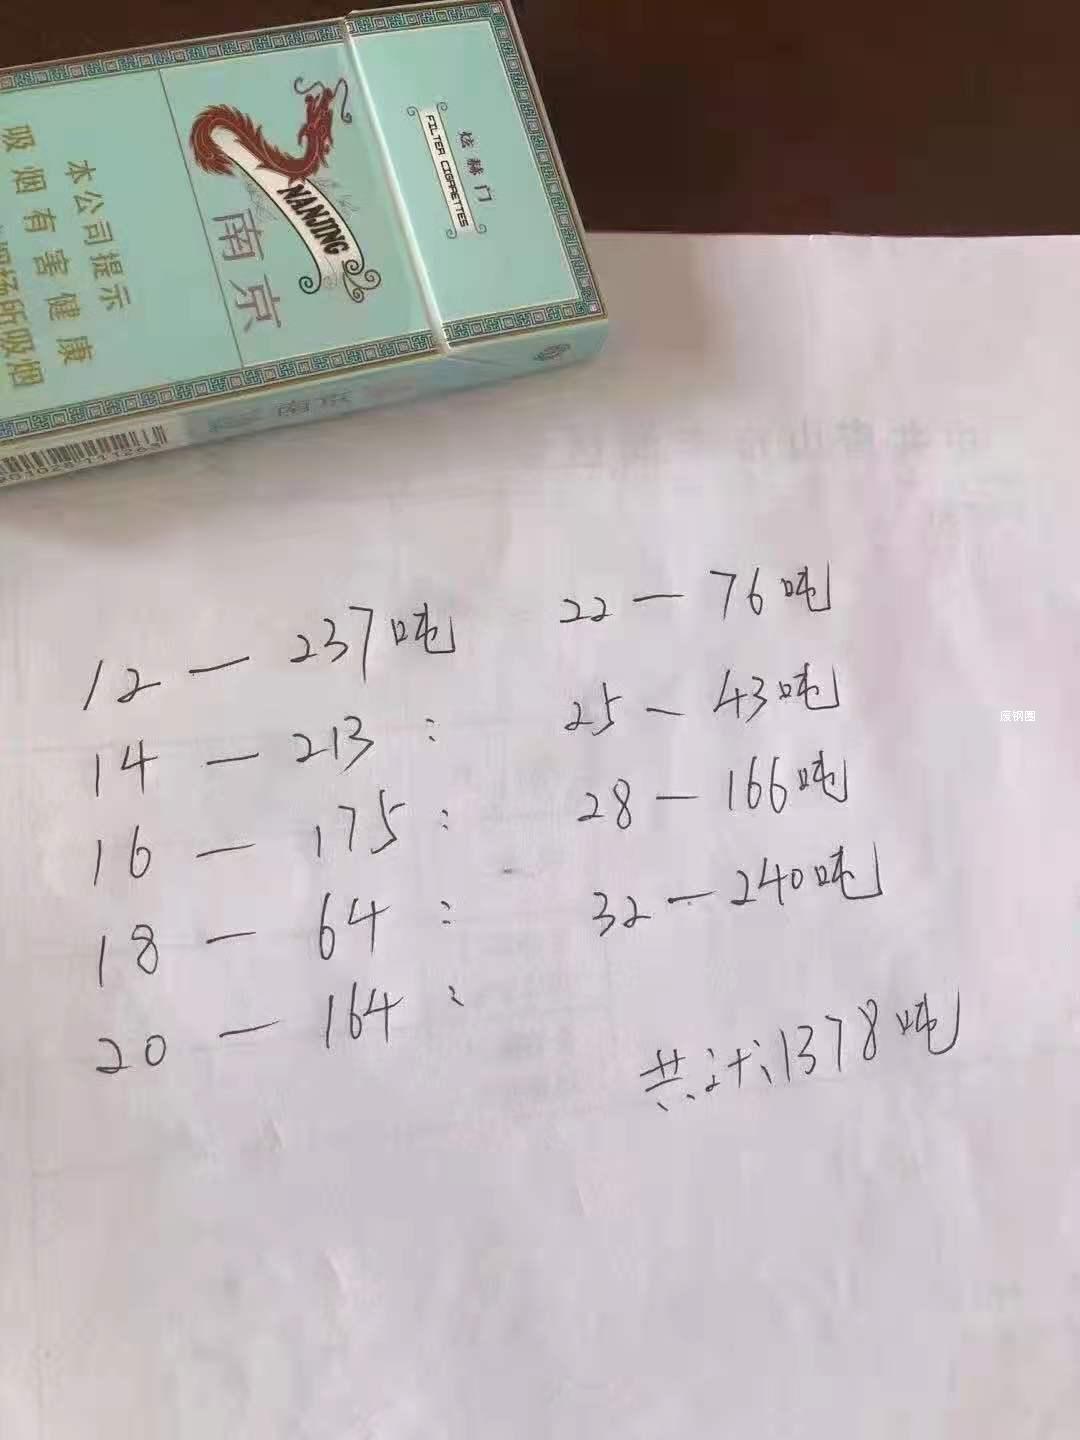 炫赫门
FILTER CIGARETTES
NANJING
南京
本公司提示
吸烟有害健康
12 — 237吨
14 — 213 :
16 — 175 :
18 — 64 :
20 — 164 :
22 — 76吨
25 — 43吨
28 — 166吨
32 — 240吨
共计1378吨
废钢圈